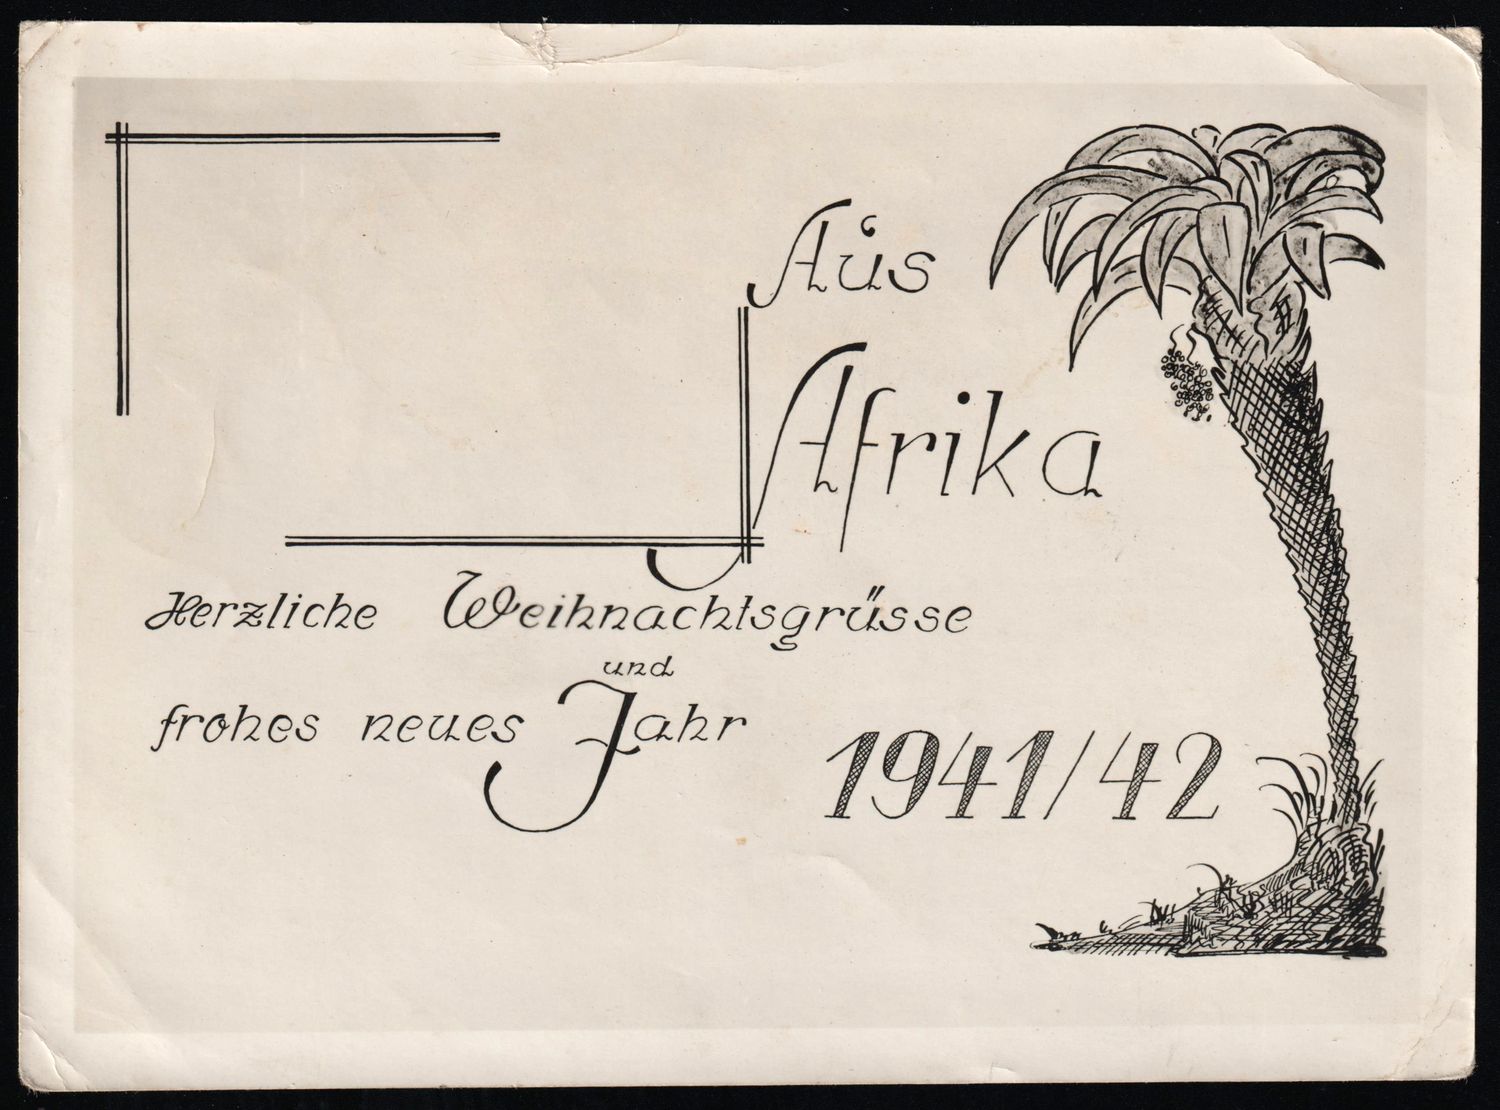 Aus
Afrika
Herzliche Weihnachtsgrüsse
und
frohes neues Jahr
1941/42